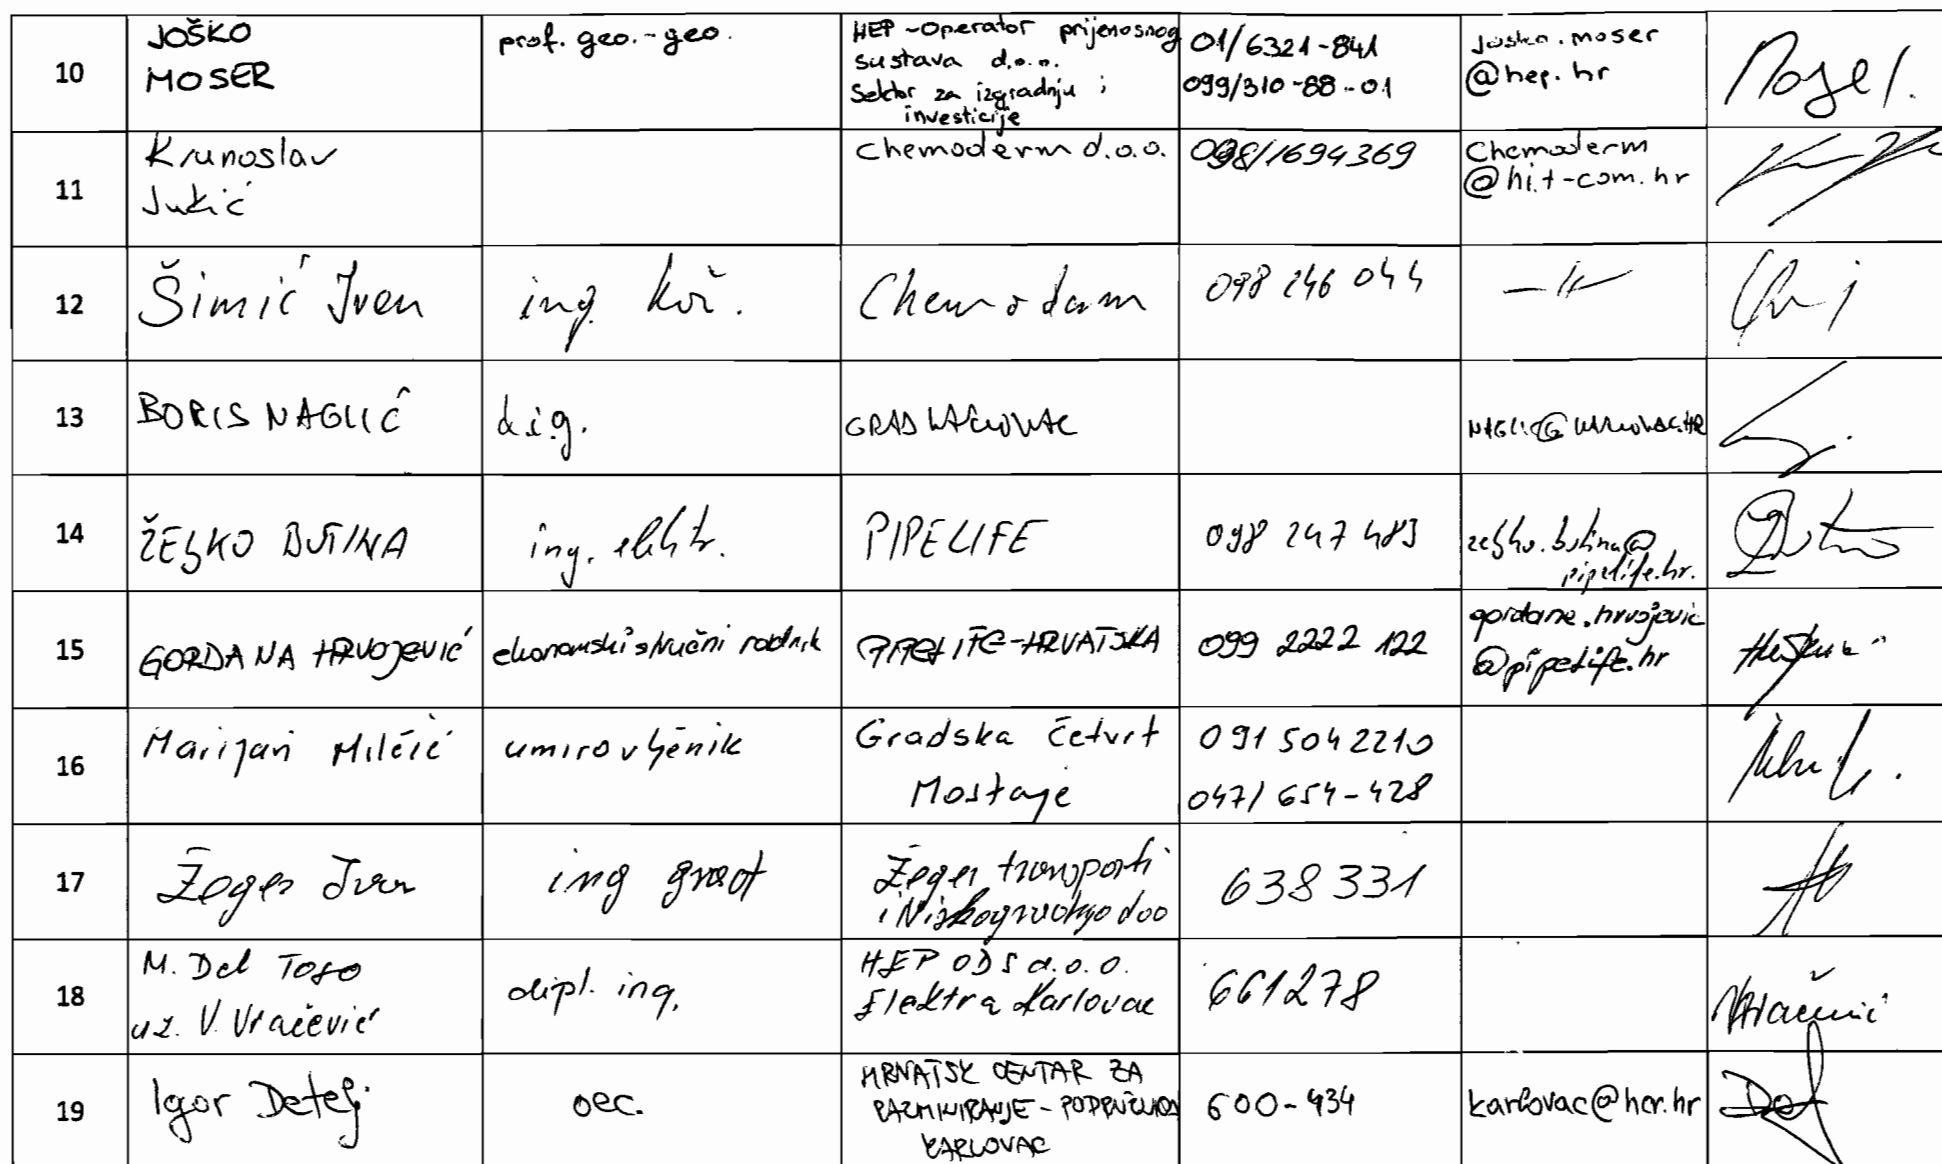 10
JOŠKO
MOSER
prof. geo.-geo.
HEP-Operator prijenosnog
sustava d.o.o.
Sektor za izgradnju i
investicije
01/6321-841
099/310-88-01
josko.moser
@hep.hr
11
Krunoslav
Jukić
Chemoderm d.o.o.
098/1694369
Chemoderm
@hi.t-com.hr
12
Šimić Ivan
ing.
098 246 044
-11-
13
BORIS NAGLIĆ
d.i.g.
GRAD KARLOVAC
14
ŽELJKO BUTINA
ing. elektr.
PIPELIFE
098 247 483
zeljko.butina@
pipelife.hr.
15
GORDANA HRVOJEVIĆ
ekonomski stručni radnik
PIPELIFE-HRVATSKA
099 2222 122
gordana.hrvojevic
@pipelife.hr
16
Marijan Milčić
umirovljenik
Gradska četvrt
Mostanje
091 5042210
047/654-428
17
Žeger Ivan
ing građ
Žeger transporti
i Niskogradnja doo
638 331
18
M. Del Toso
uz. V. Vračević
dipl. ing.
HEP ODS d.o.o.
Elektra Karlovac
661278
19
Igor Detelj
oec.
HRVATSK CENTAR ZA
RAZMINIRANJE - PODRUŽNICA
KARLOVAC
600-434
karlovac@hcr.hr